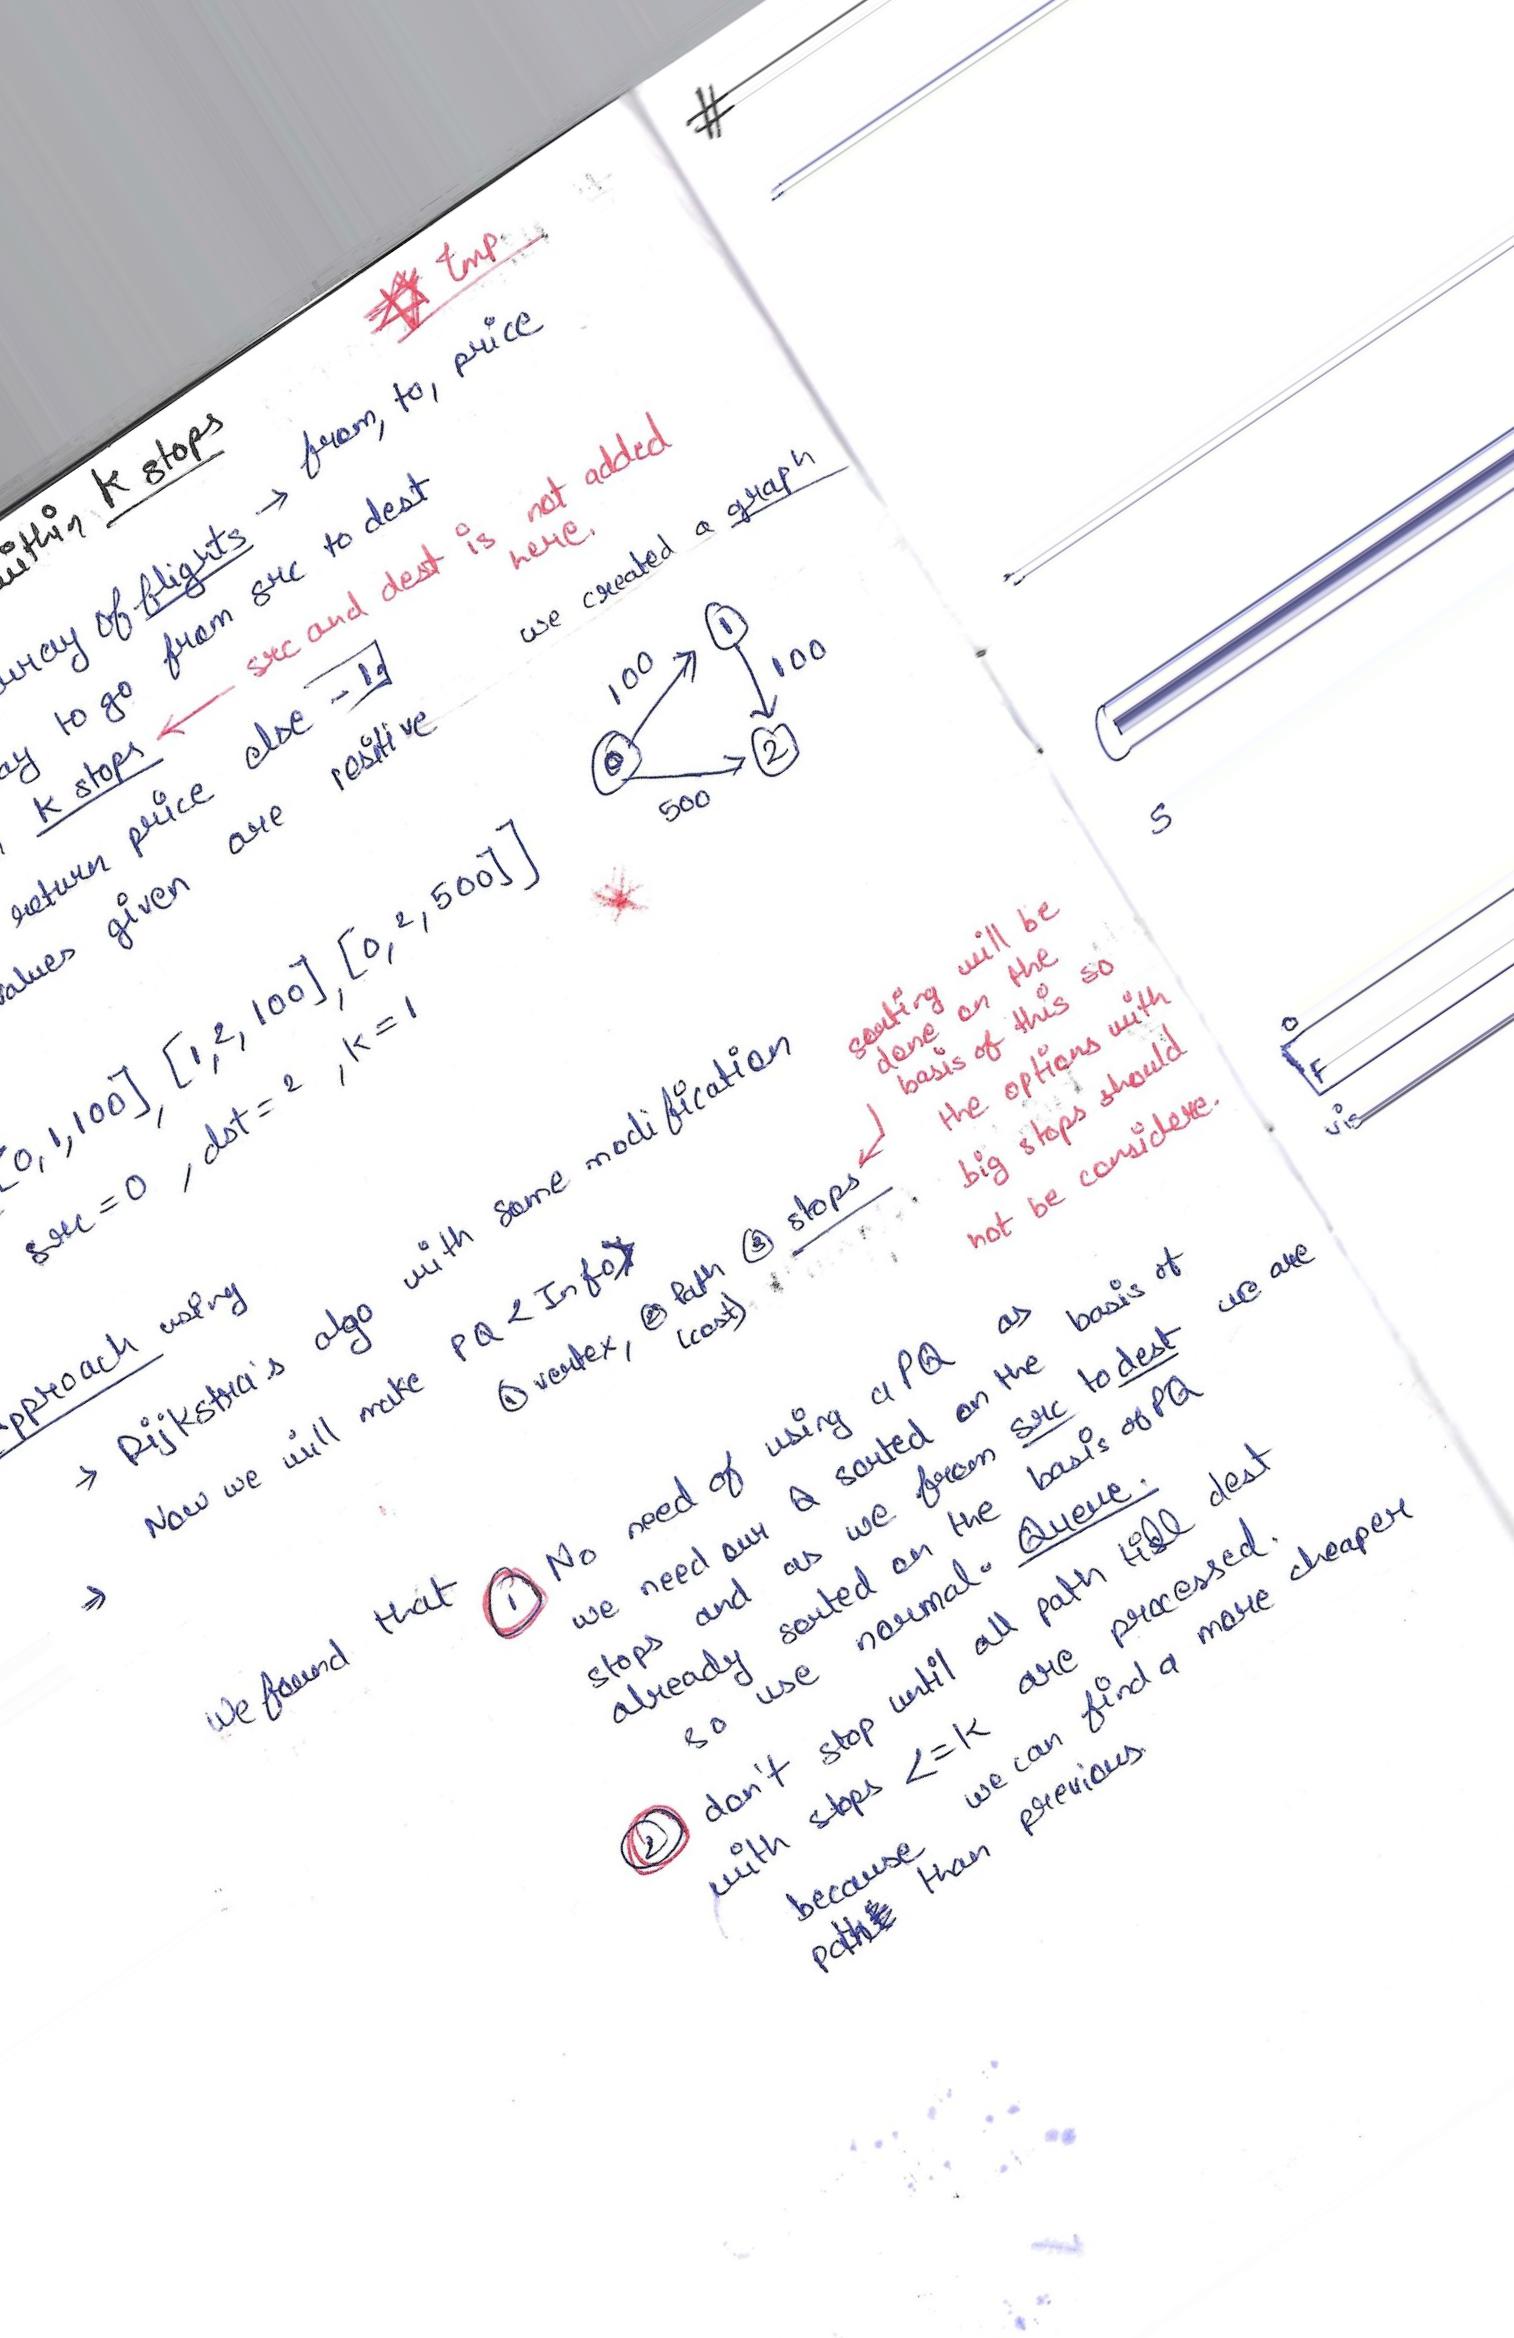 ✡ Imp.
within K stops
array of flights → from, to, price
to go from src to dest
K stops ← src and dest is not added
here.
return price else -1.
values given are positive
we created a graph
0 100 1
100
500 2
[0,1,100], [1,2,100], [0,2,500]]
src=0, dst=2, k=1
*
Approach using
→ Dijkstra's algo with some modification
Now we will make PQ<Info>
① vertex, ② Path ③ stops
(cost)
sorting will be
done on the
basis of this so
the options with
big stops should
not be considere.
→
we found that ① No need of using a PQ as
we need our Q sorted on the basis of
stops and as we from src to dest we are
already sorted on the basis of PQ
so use normal. Queue.
② don't stop until all path till dest
with stops <=K are processed.
because we can find a more cheaper
path than previous
#
S
0
F
vis